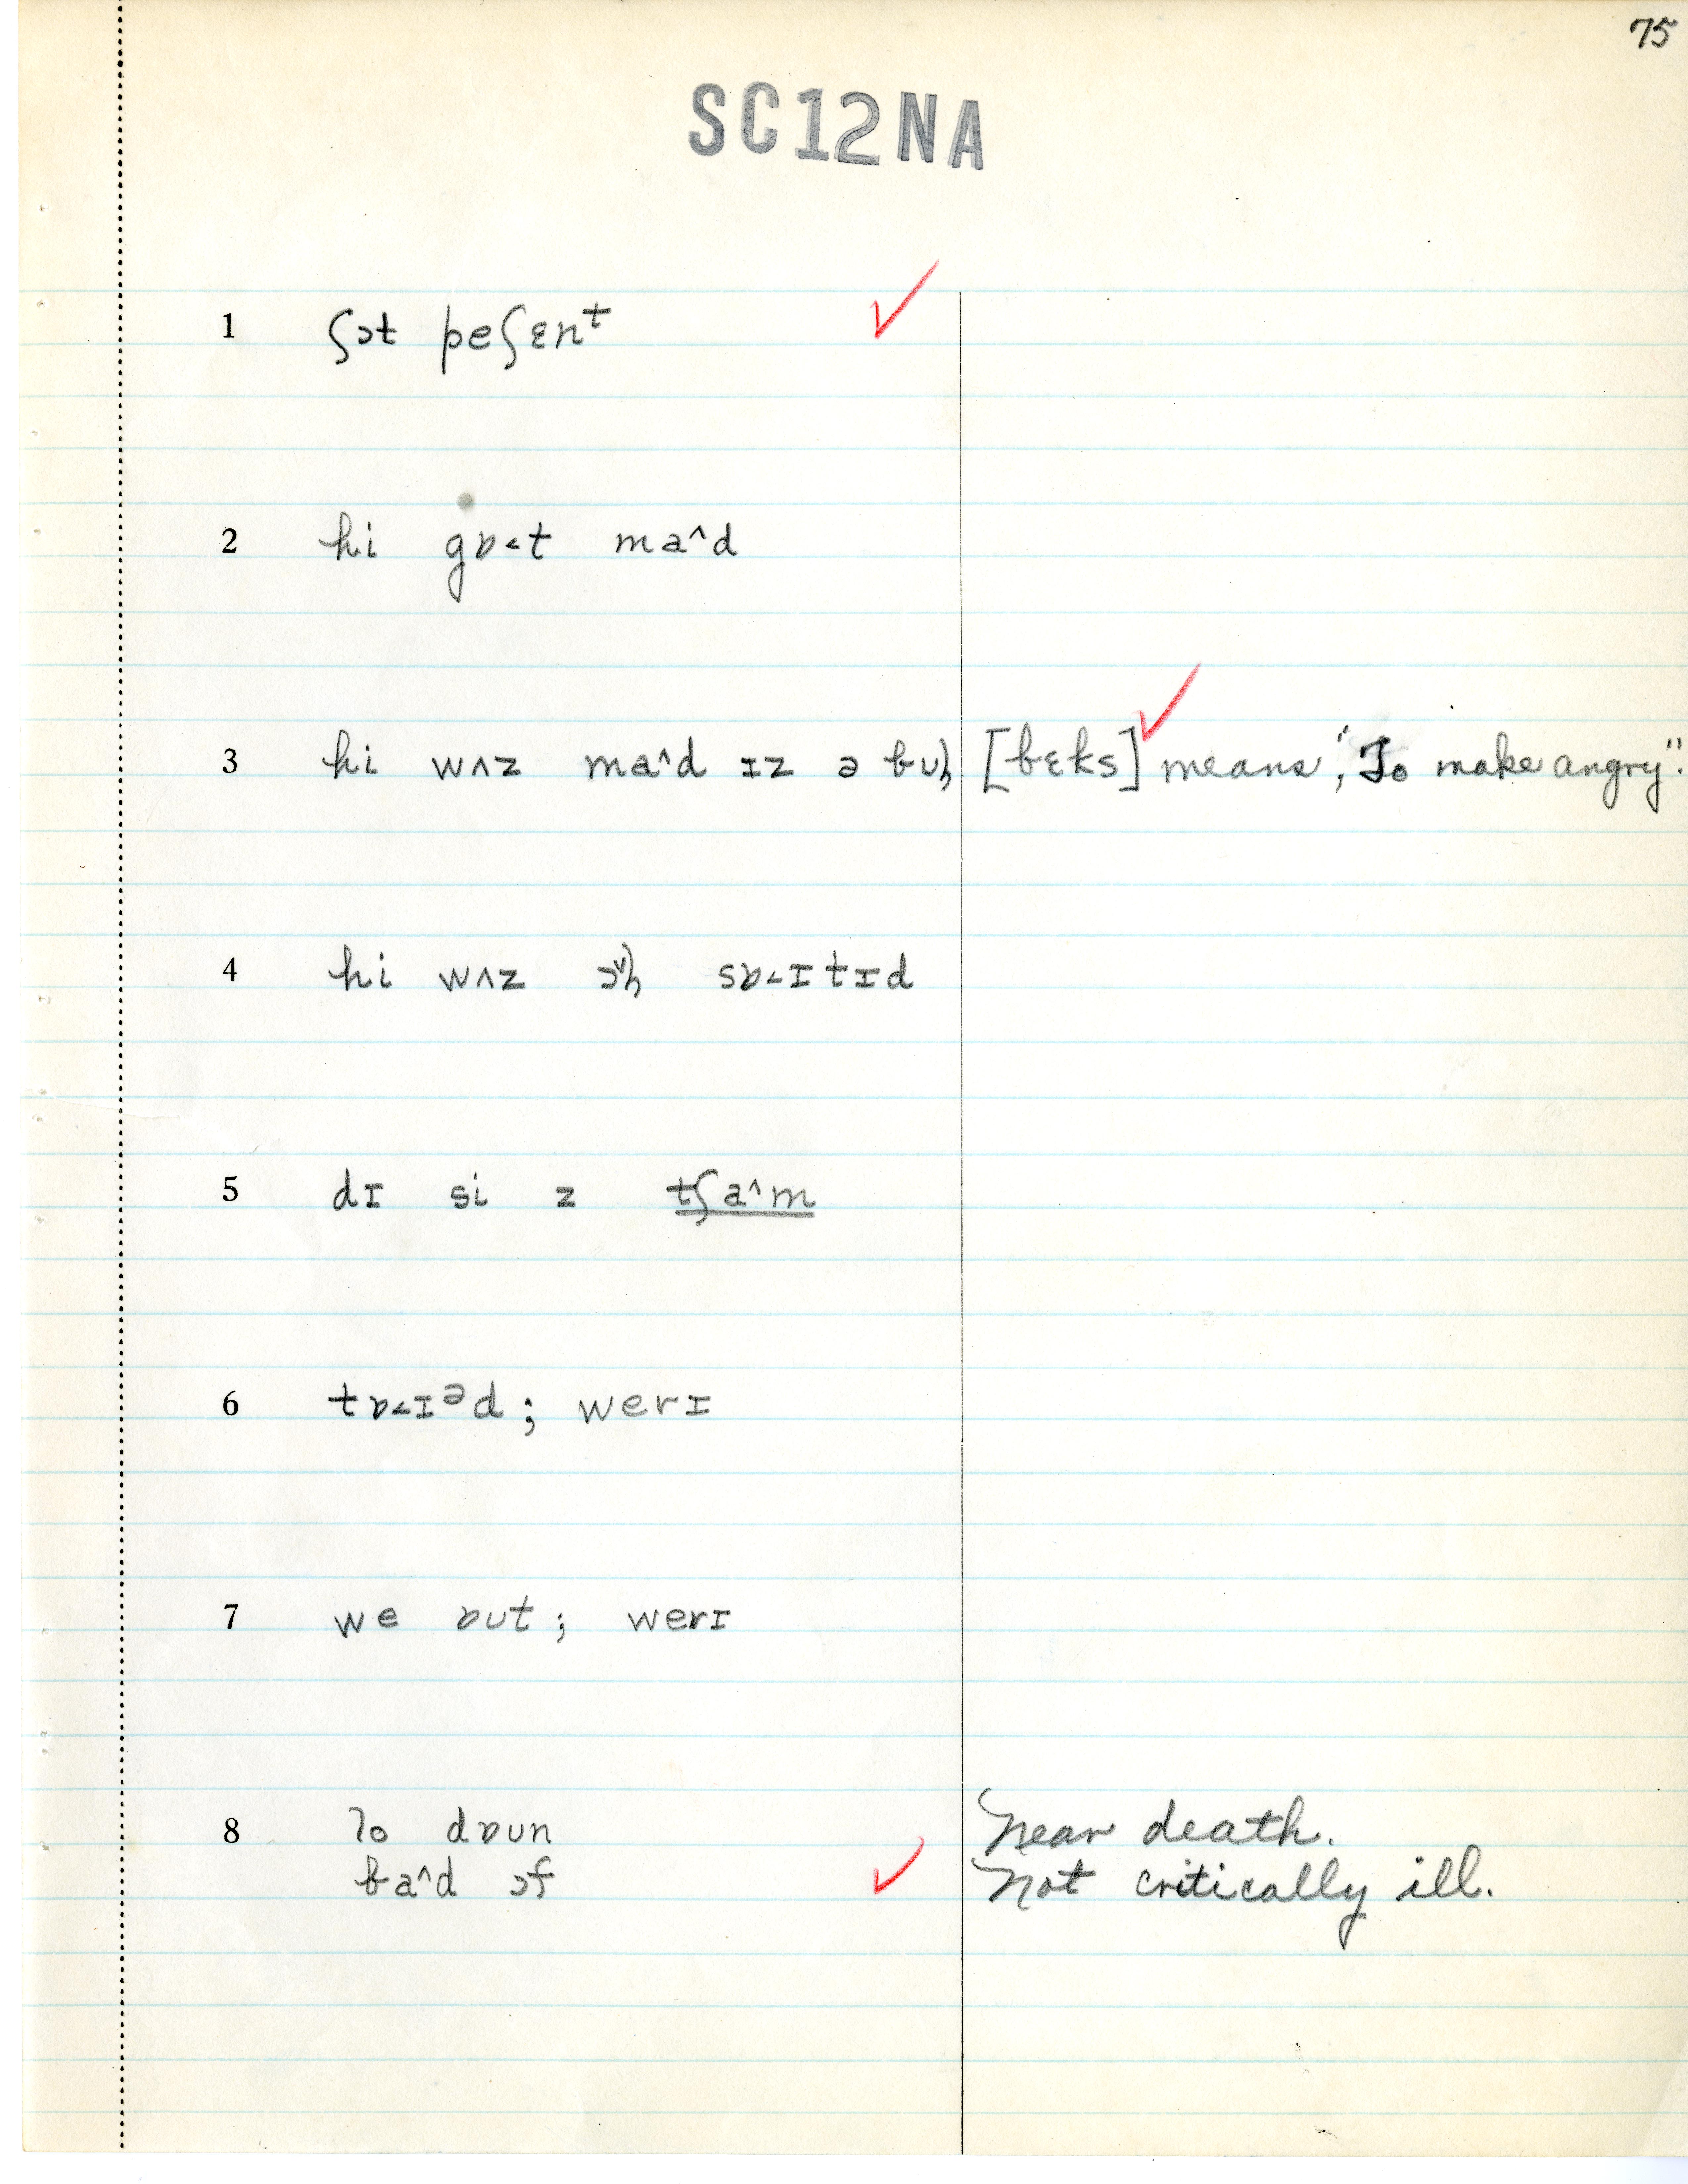 75
SC12NA
1 ʃɔt peʃɛnᵗ
2 hi gɒ˂t ma^d
3 hi wʌz ma^d ɪz ə bʊḷ [bɛks] means, "To make angry".
4 hi wʌz sɒ˂ɪtɪd
5 dɪ si z tʃa^m
6 tɒ˂ɪᵊd; werɪ
7 we ɒut; werɪ
8 lo dɒun Near death.
ba^d ɔf Not critically ill.